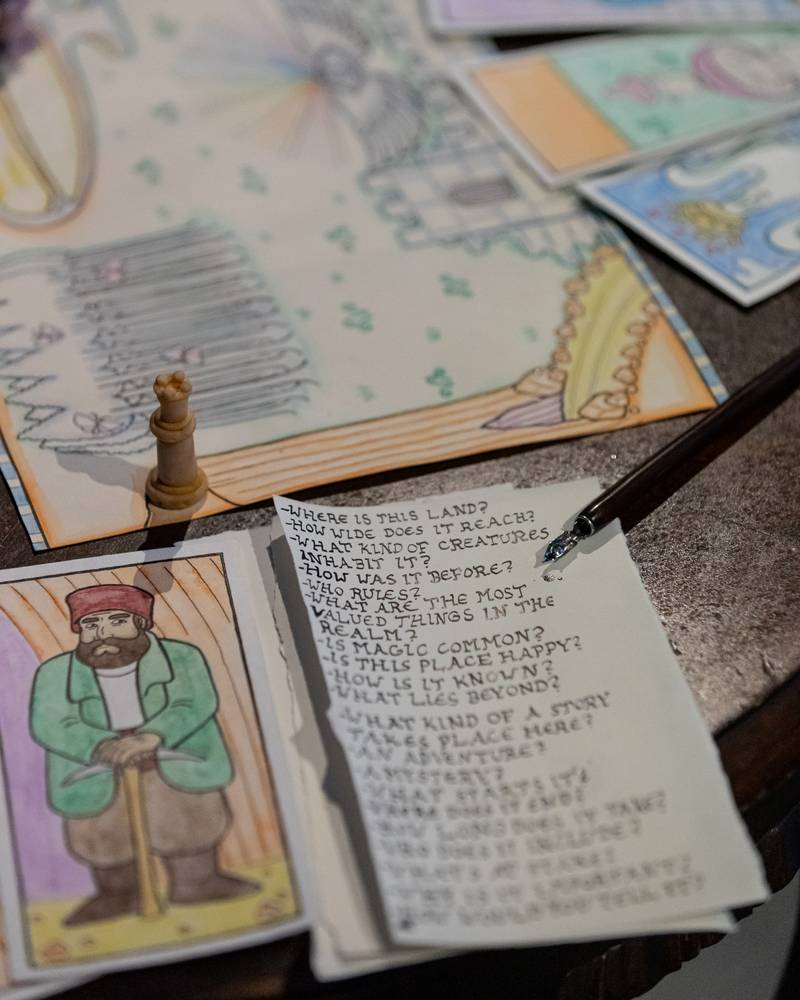 -WHERE IS THIS LAND?
-HOW WIDE DOES IT REACH?
-WHAT KIND OF CREATURES
INHABIT IT?
-HOW WAS IT BEFORE?
-WHO RULES?
-WHAT ARE THE MOST
VALUED THINGS IN THE
REALM?
-IS MAGIC COMMON?
-IS THIS PLACE HAPPY?
-HOW IS IT KNOWN?
-WHAT LIES BEYOND?
-WHAT KIND OF A STORY
TAKES PLACE HERE?
-AN ADVENTURE?
-A MYSTERY?
-WHAT STARTS IT?
-WHERE DOES IT END?
-HOW LONG DOES IT TAKE?
-WHO DOES IT INCLUDE?
-WHAT'S AT STAKE?
-WHY IS IT IMPORTANT?
-HOW WOULD YOU TELL IT?